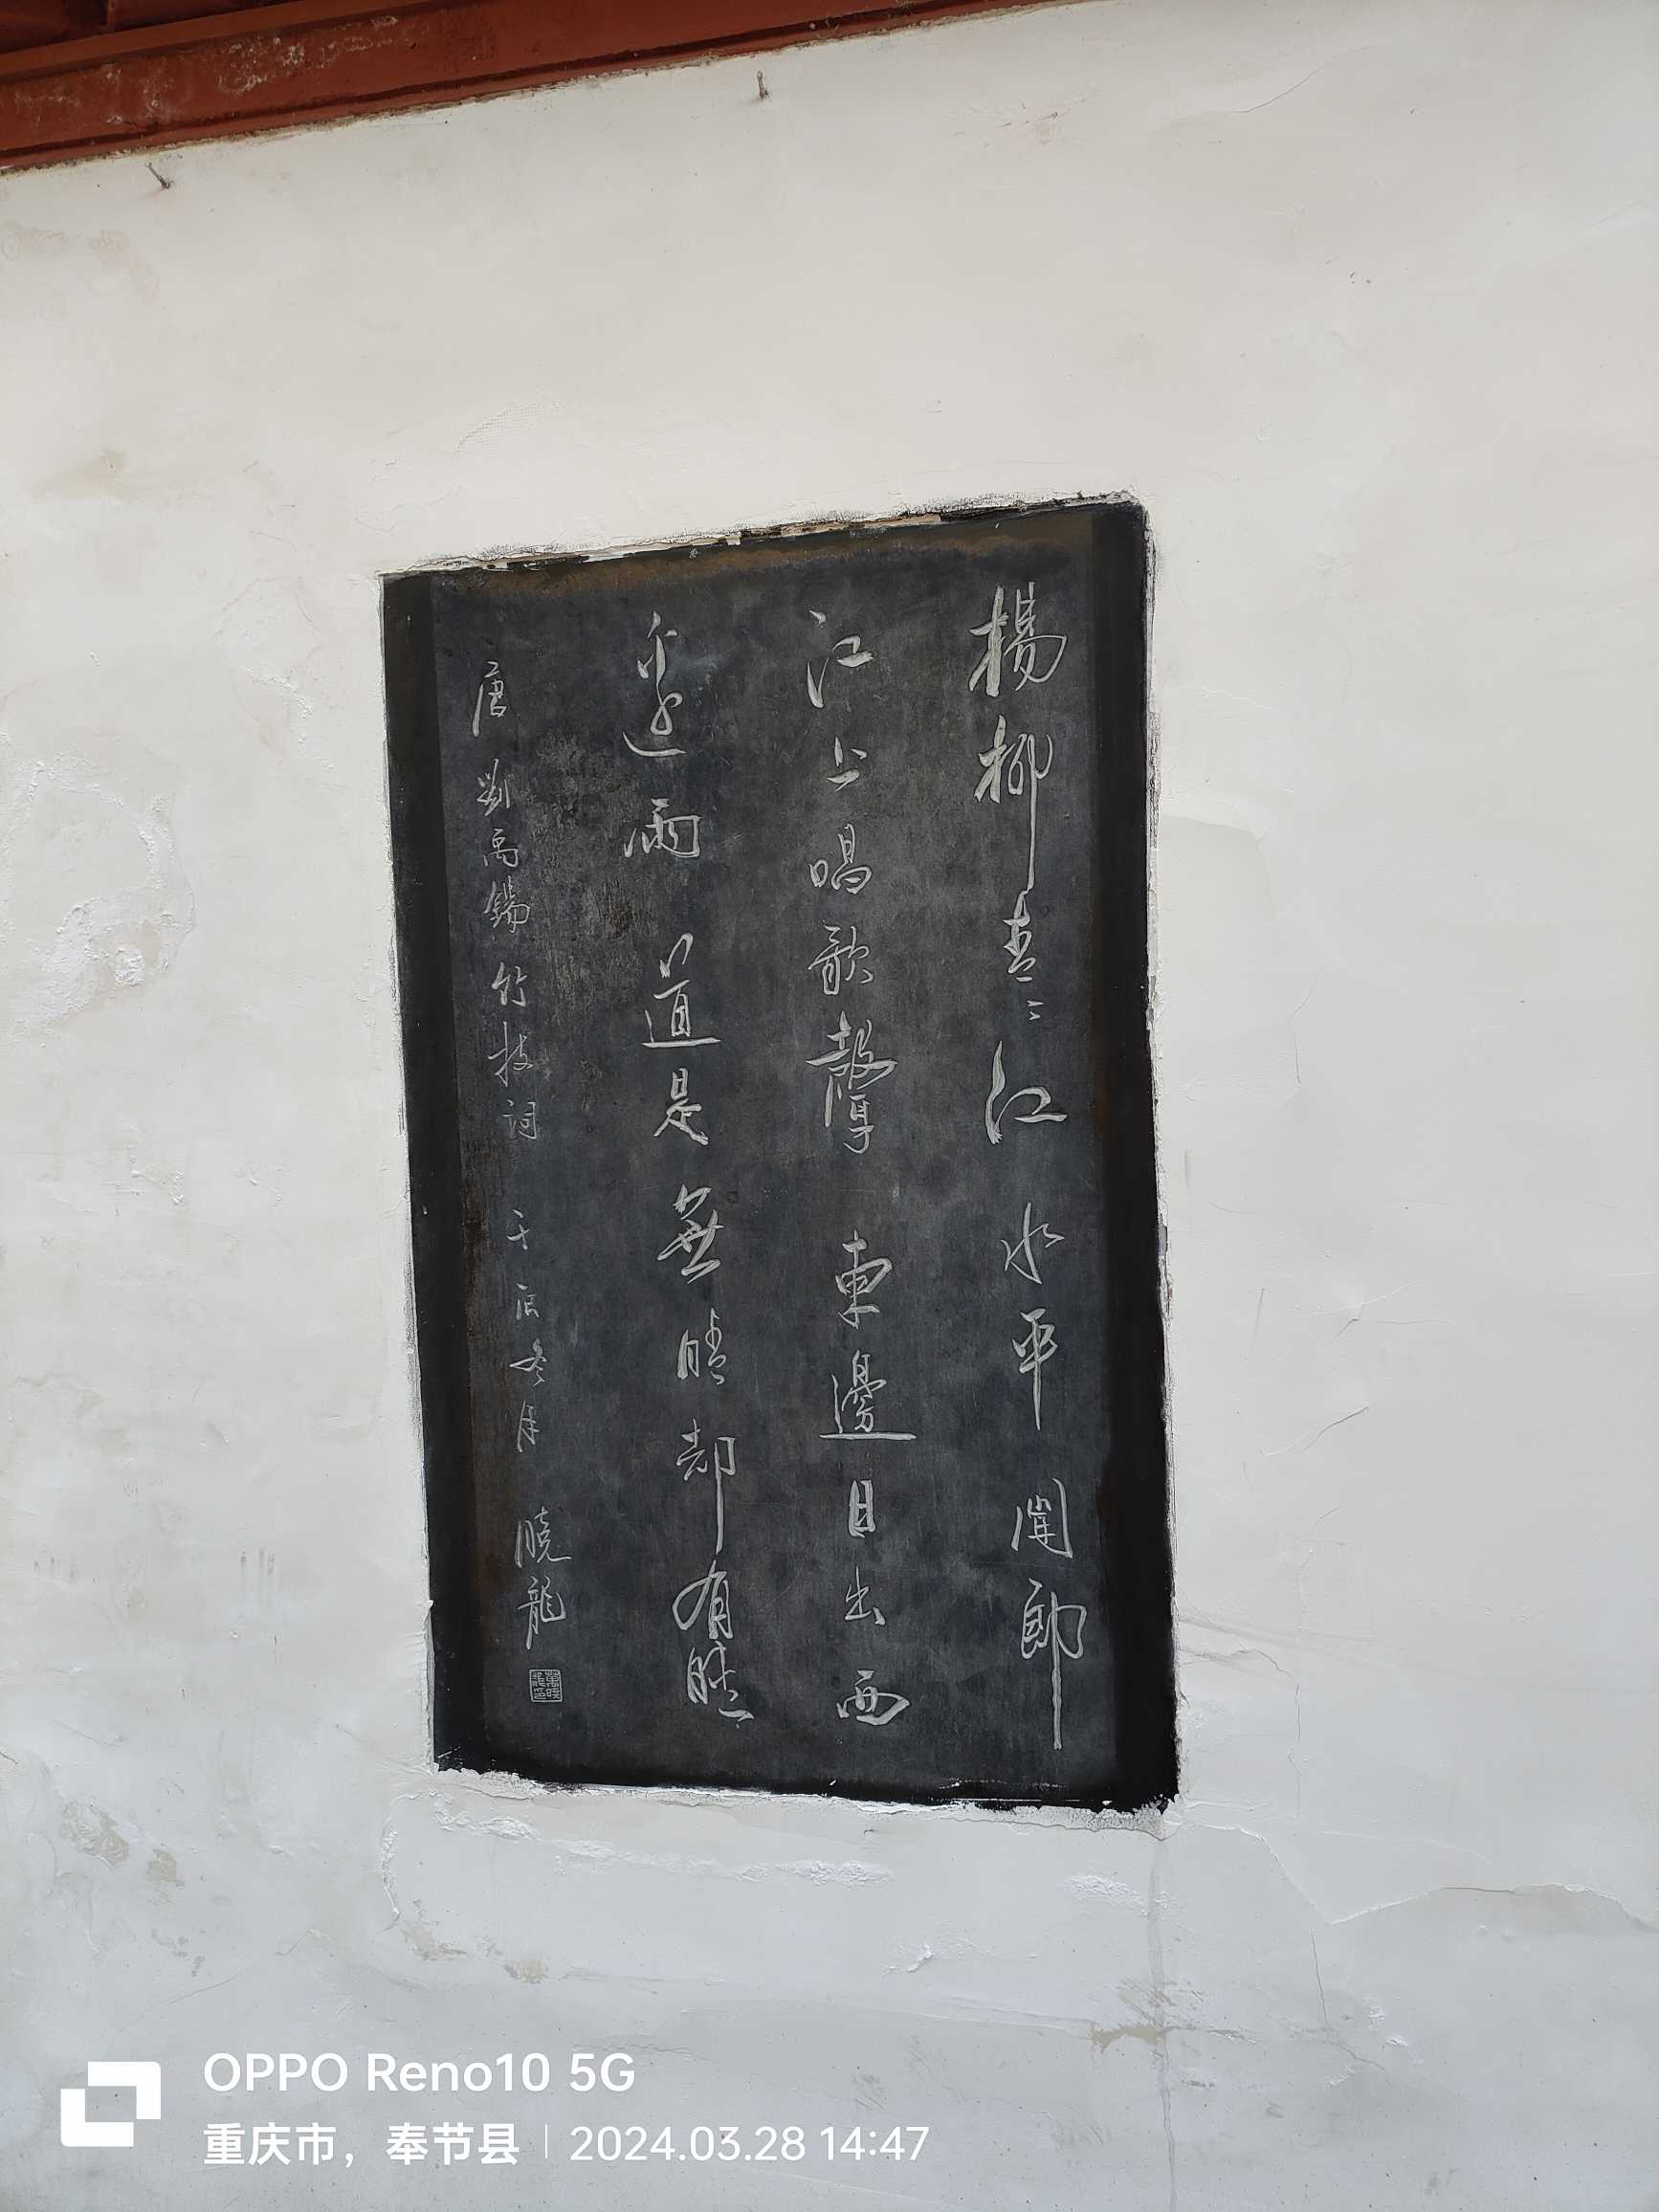 楊柳青〻江水平聞郎
江上唱歌聲東邊日出西
邊雨道是無晴却有晴
唐劉禹錫竹枝詞壬辰冬月曉龍
OPPO Reno10 5G
重庆市，奉节县 | 2024.03.28 14:47